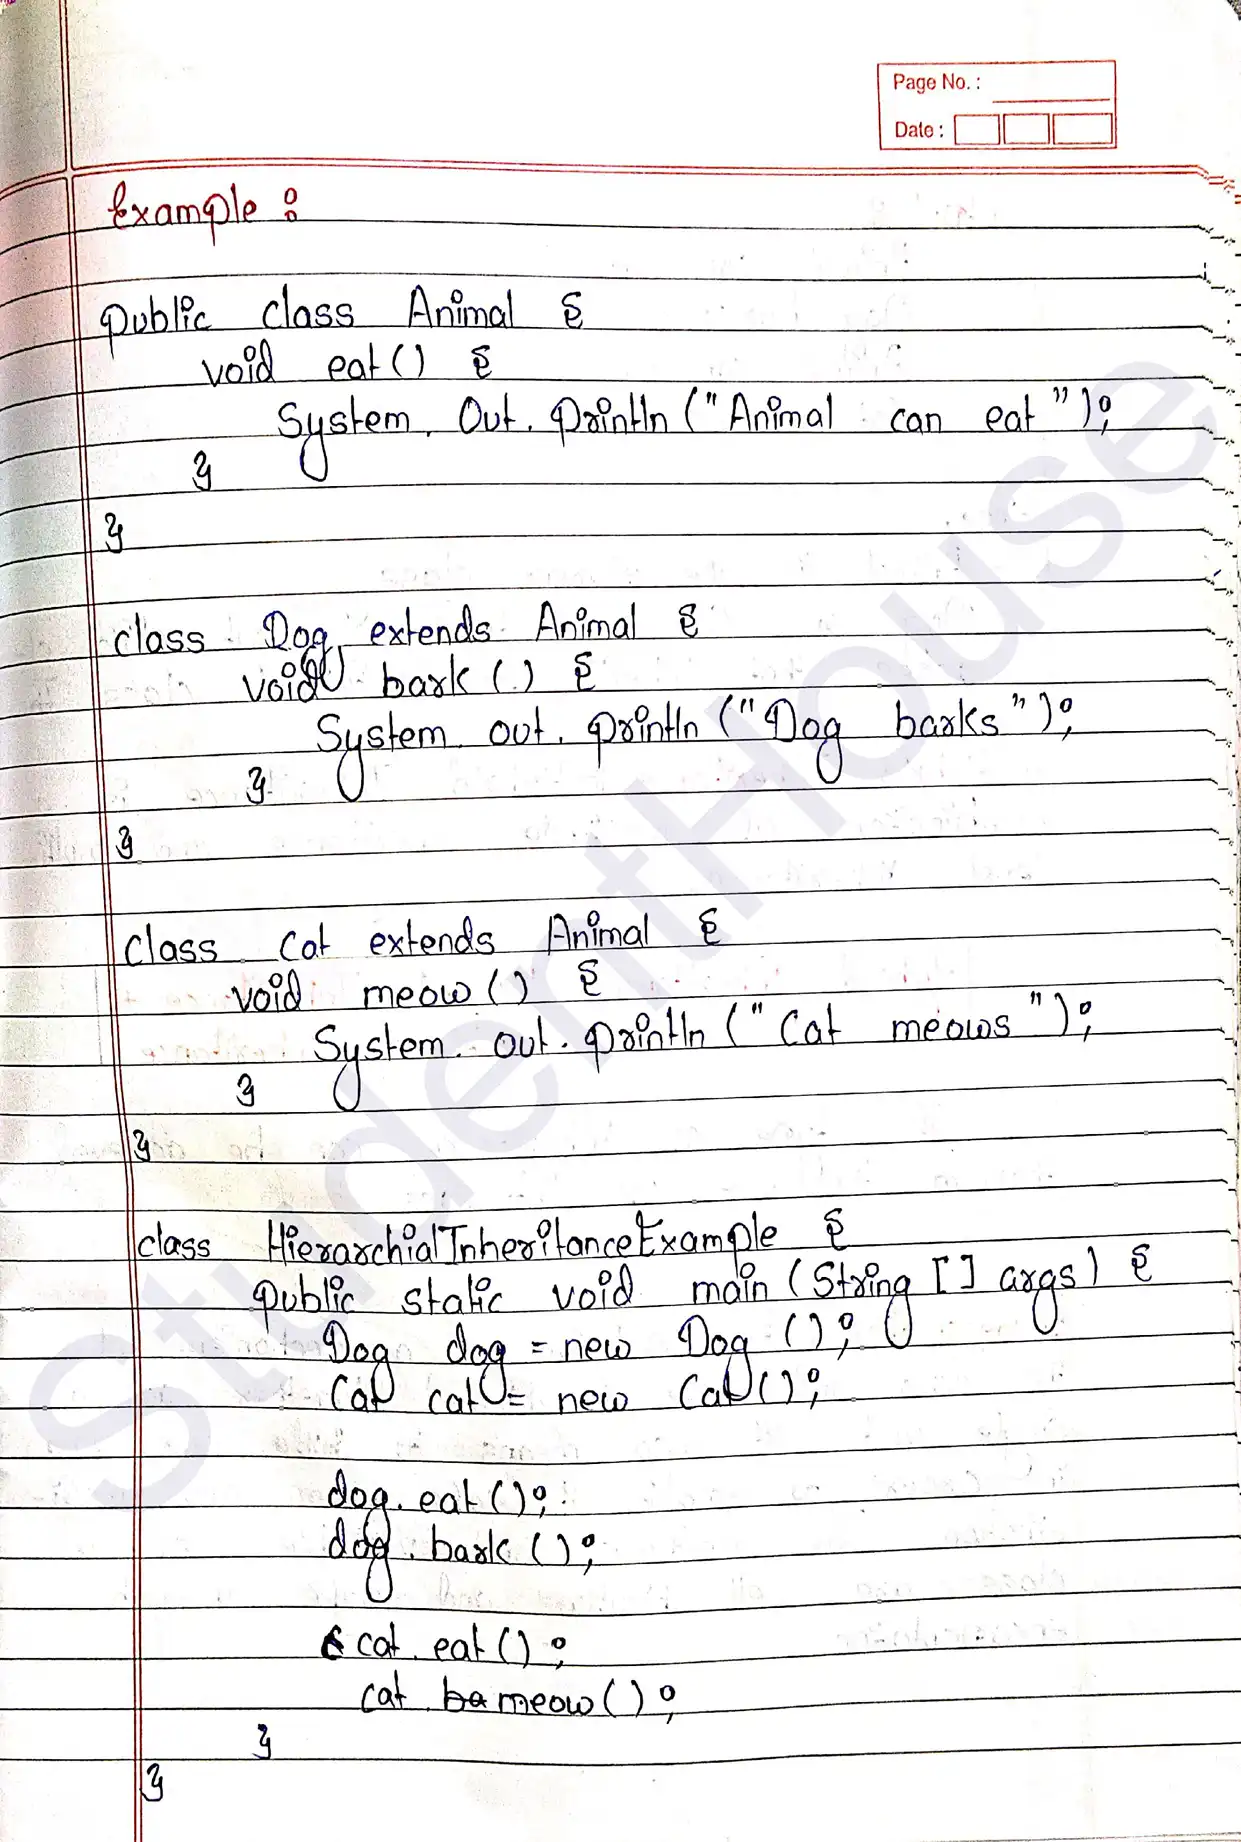 Page No. :
Date :
Example :
public class Animal {
void eat() {
System. Out. println ("Animal can eat");
}
}
class Dog extends Animal {
void bark () {
System. out. println ("Dog barks");
}
}
class Cat extends Animal {
void meow () {
System. out. println ("Cat meows");
}
}
class HierarchialInheritanceExample {
public static void main (String [] args) {
Dog dog = new Dog ();
Cat cat = new Cat();
dog. eat ();
dog. bark ();
cat. eat ();
cat. meow ();
}
}
StudentHouse